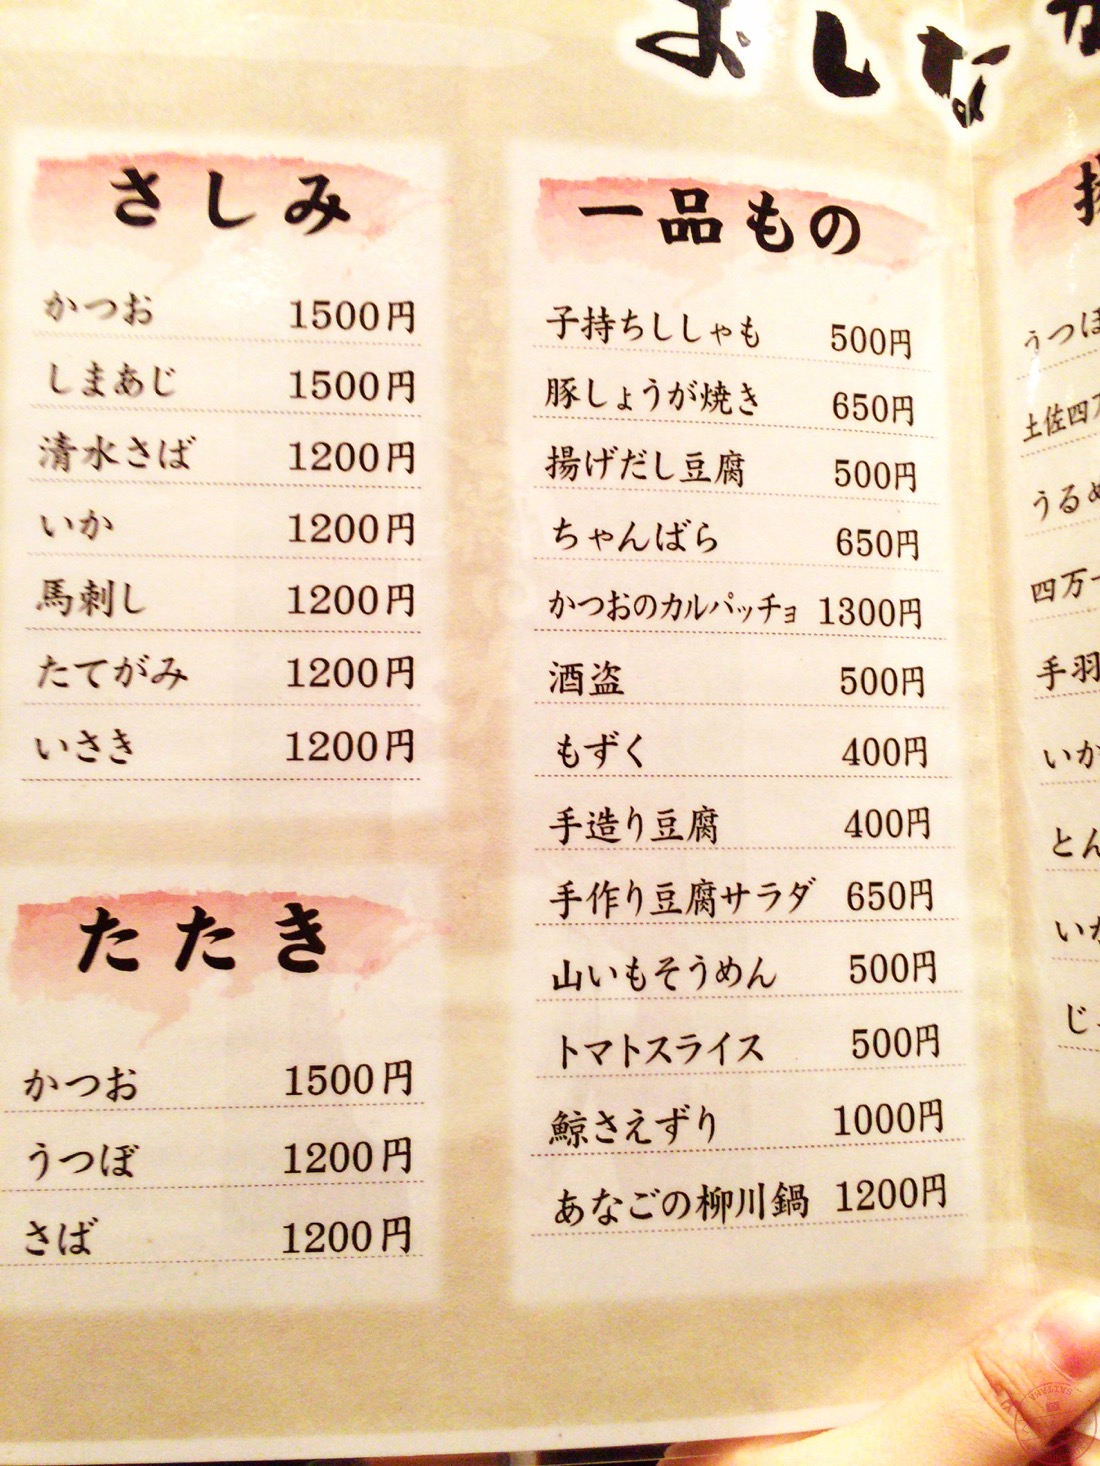 おしな
さしみ
かつお 1500円
しまあじ 1500円
清水さば 1200円
いか 1200円
馬刺し 1200円
たてがみ 1200円
いさき 1200円
たたき
かつお 1500円
うつぼ 1200円
さば 1200円
一品もの
子持ちししゃも 500円
豚しょうが焼き 650円
揚げだし豆腐 500円
ちゃんばら 650円
かつおのカルパッチョ 1300円
酒盗 500円
もずく 400円
手造り豆腐 400円
手作り豆腐サラダ 650円
山いもそうめん 500円
トマトスライス 500円
鯨さえずり 1000円
あなごの柳川鍋 1200円
うつぼ
土佐四万
うるめ
四万十
手羽
いか
とん
いか
じ